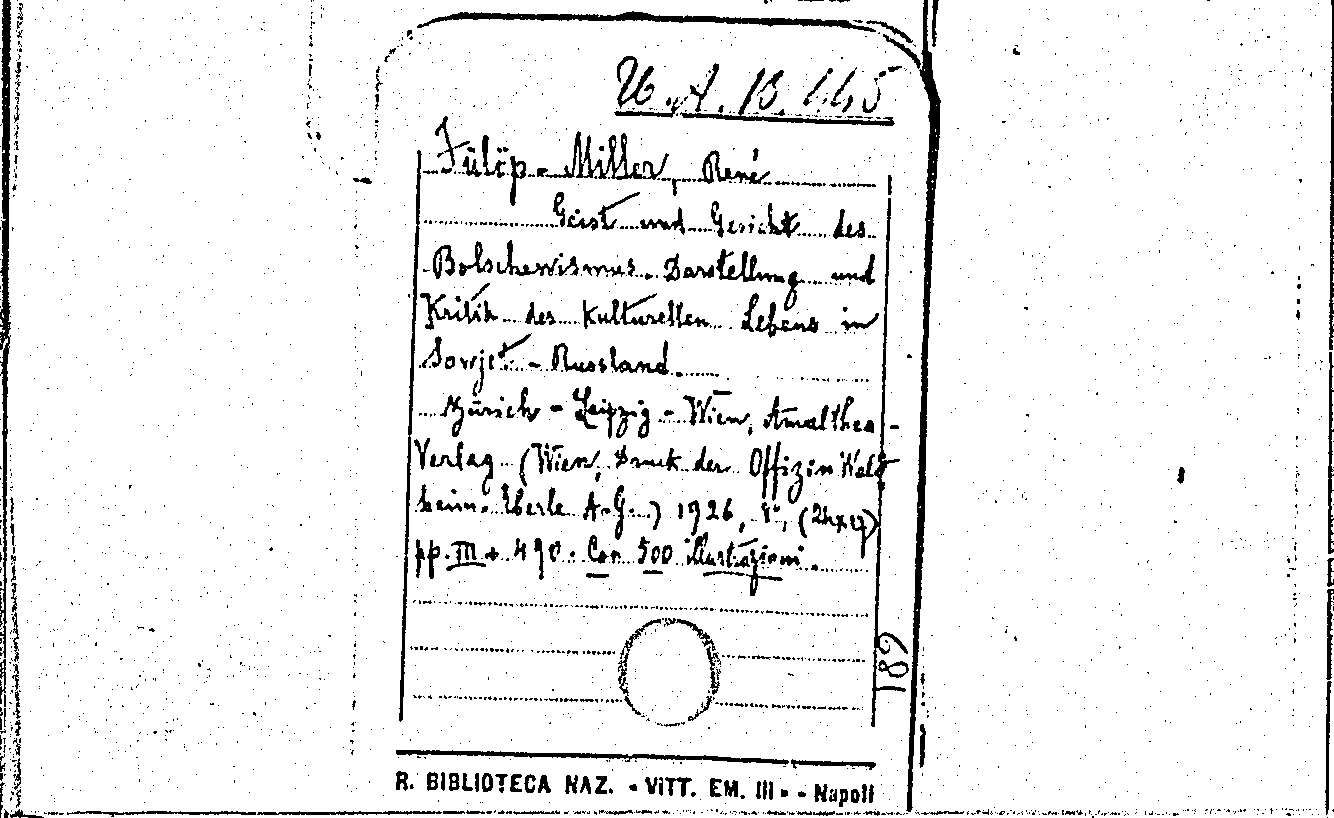 A. B. 445
Fülöp - Miller, René
Geist und Gesicht des
Bolschewismus. Darstellung und
Kritik des kulturellen Lebens in
Sowjet - Russland.
Zürich - Leipzig - Wien, Amalthea -
Verlag (Wien, Druck der Offizin Wald
heim - Eberle A-G.) 1926, 8°,
pp. III + 490. Con 500 illustrazioni.
189
R. BIBLIOTECA NAZ. - VITT. EM. III - - Napoli